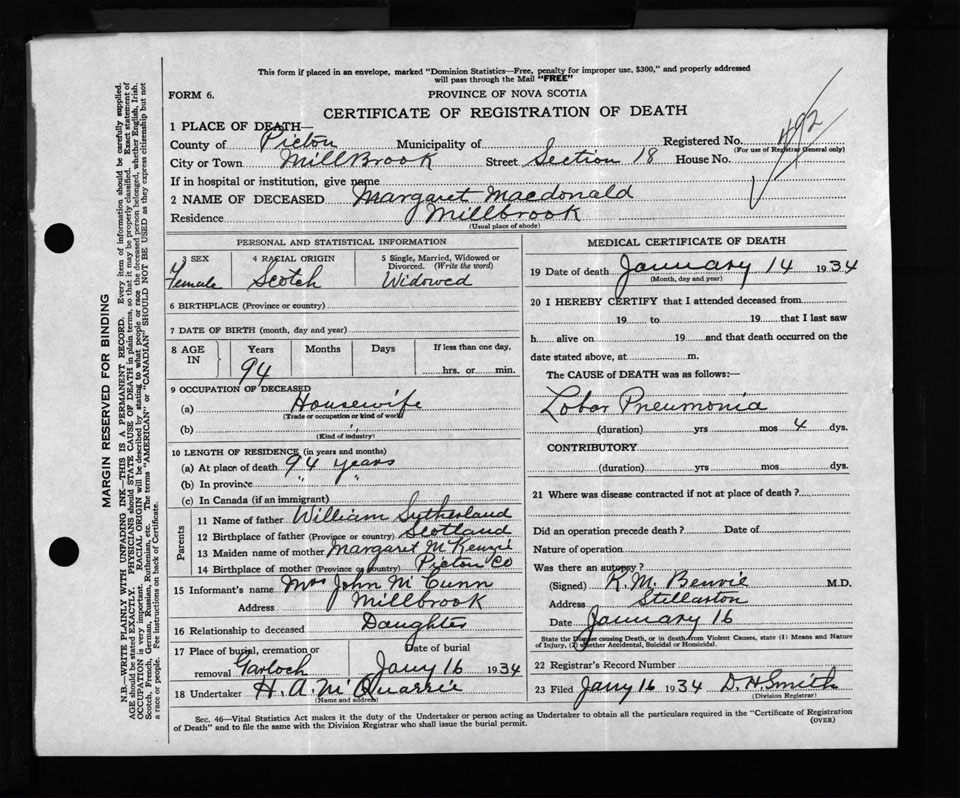 This form if placed in an envelope, marked "Dominion Statistics—Free, penalty for improper use, $300," and properly addressed
will pass through the Mail "FREE"
FORM 6.
PROVINCE OF NOVA SCOTIA
CERTIFICATE OF REGISTRATION OF DEATH
1 PLACE OF DEATH—
County of Pictou Municipality of Registered No. 492
(For use of Registrar General only)
City or Town MillBrook Street Section 18 House No.
If in hospital or institution, give name
2 NAME OF DECEASED Margaret Macdonald
Residence Millbrook
(Usual place of abode)
PERSONAL AND STATISTICAL INFORMATION
3 SEX 4 RACIAL ORIGIN 5 Single, Married, Widowed or Divorced. (Write the word)
Female Scotch Widowed
6 BIRTHPLACE (Province or country)
7 DATE OF BIRTH (month, day and year)
8 AGE IN Years Months Days If less than one day,
94 hrs. or min.
9 OCCUPATION OF DECEASED
(a) Housewife
(Trade or occupation or kind of work)
(b)
(Kind of industry)
10 LENGTH OF RESIDENCE (in years and months)
(a) At place of death 94 years
(b) In province " "
(c) In Canada (if an immigrant)
Parents
11 Name of father William Sutherland
12 Birthplace of father (Province or country) Scotland
13 Maiden name of mother Margaret McKenzie
14 Birthplace of mother (Province or country) Pictou Co
15 Informant's name Mrs John McCunn
Address Millbrook
16 Relationship to deceased Daughter
17 Place of burial, cremation or removal Garloch Date of burial Jany 16 1934
18 Undertaker H. A. McQuarrie
(Name and address)
MEDICAL CERTIFICATE OF DEATH
19 Date of death January 14 1934
(Month, day and year)
20 I HEREBY CERTIFY that I attended deceased from
19 to 19 that I last saw
h alive on 19 and that death occurred on the
date stated above, at m.
The CAUSE of DEATH was as follows:—
Lobar Pneumonia
(duration) yrs mos 4 dys.
CONTRIBUTORY
(duration) yrs. mos. dys.
21 Where was disease contracted if not at place of death?
Did an operation precede death? Date of
Nature of operation
Was there an autopsy?
(Signed) K. M. Benvie M.D.
Address Stellarton
Date January 16
State the Disease causing Death, or in death from Violent Causes, state (1) Means and Nature
of Injury, (2) whether Accidental, Suicidal or Homicidal.
22 Registrar's Record Number
23 Filed Jany 16 1934 D. H Smith
(Division Registrar)
Sec. 46—Vital Statistics Act makes it the duty of the Undertaker or person acting as Undertaker to obtain all the particulars required in the "Certificate of Registration
of Death" and to file the same with the Division Registrar who shall issue the burial permit.
(OVER)
MARGIN RESERVED FOR BINDING
N.B.—WRITE PLAINLY WITH UNFADING INK—THIS IS A PERMANENT RECORD. Every item of information should be carefully supplied.
AGE should be stated EXACTLY. PHYSICIANS should STATE CAUSE OF DEATH in plain terms, so that it may be properly classified. Exact statement of
OCCUPATION is very important. RACIAL ORIGIN will be described by stating to what people or race the deceased person belonged, whether English, Irish,
Scotch, French, German, Russian, Ruthenian, etc. The terms "AMERICAN" or "CANADIAN" SHOULD NOT BE USED as they express citizenship but not
a race or people. See instructions on back of Certificate.